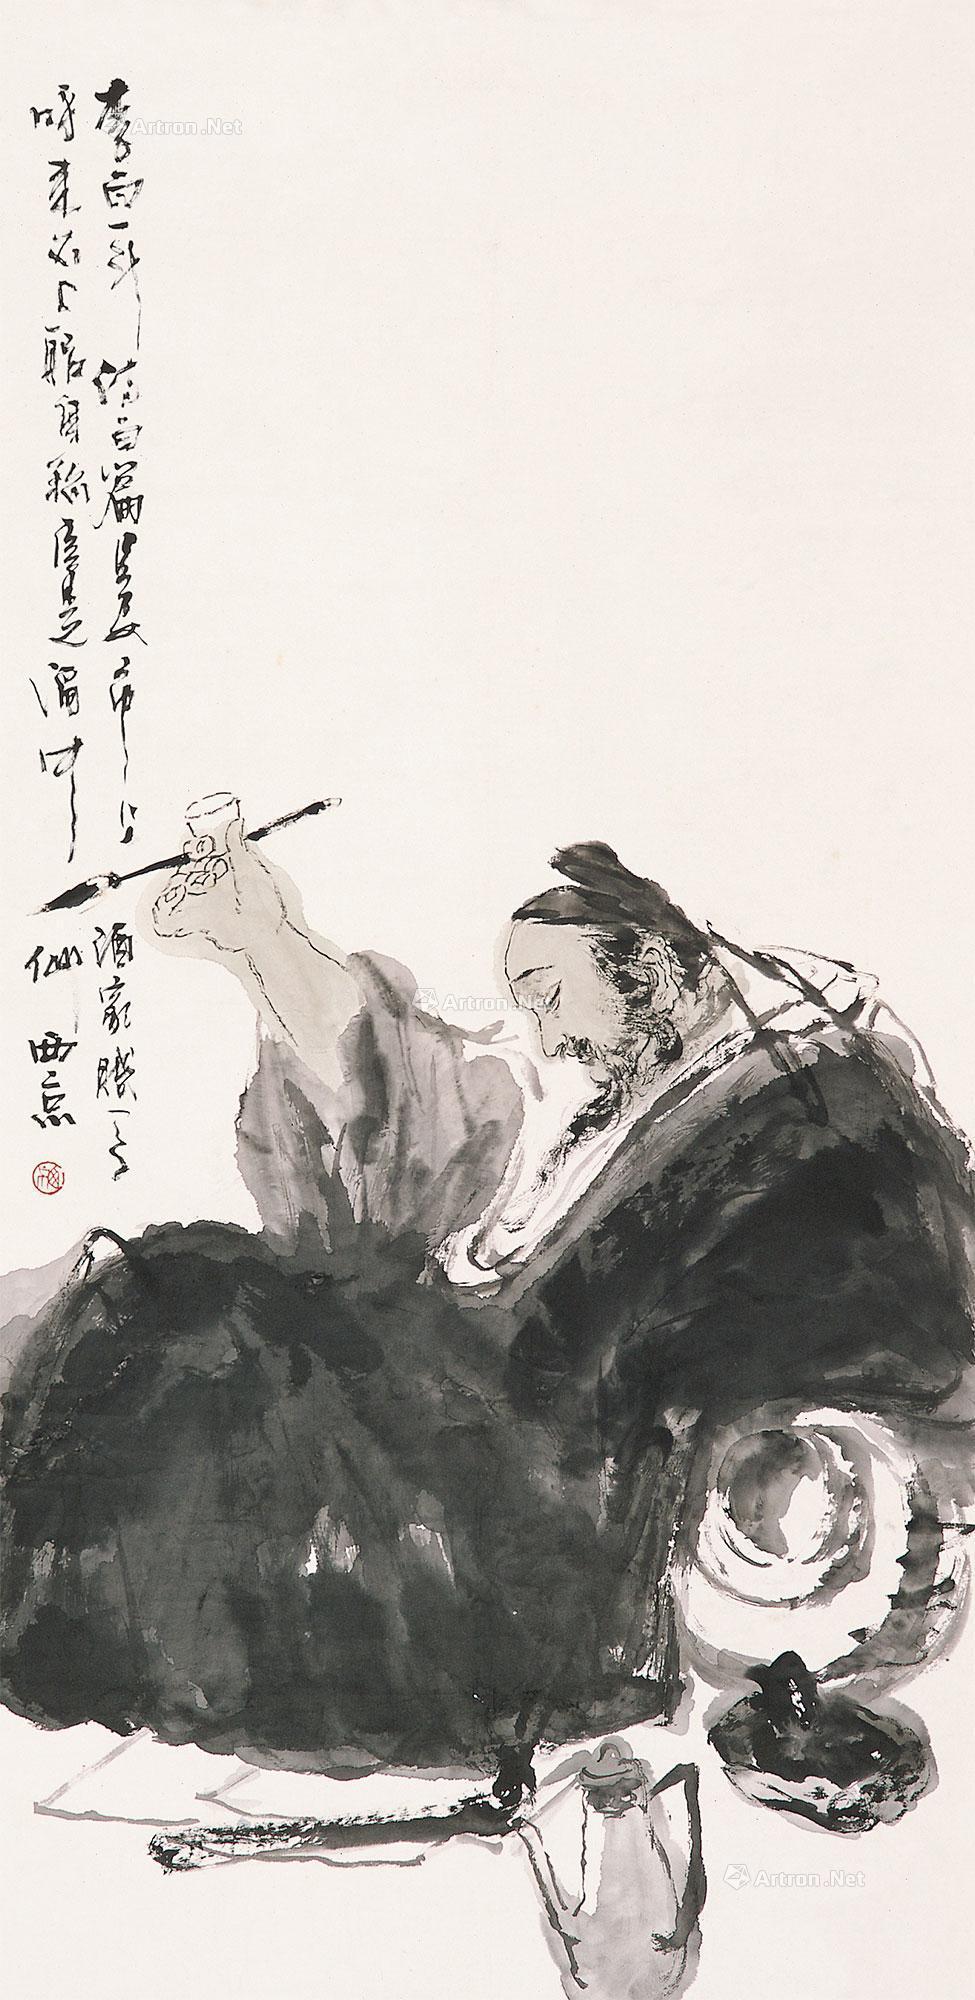 李白一斗诗百篇長安市上酒家眠天子
呼来不上船自称臣是酒中仙 西京
Artron.Net
Artron.Net
Artron.Net